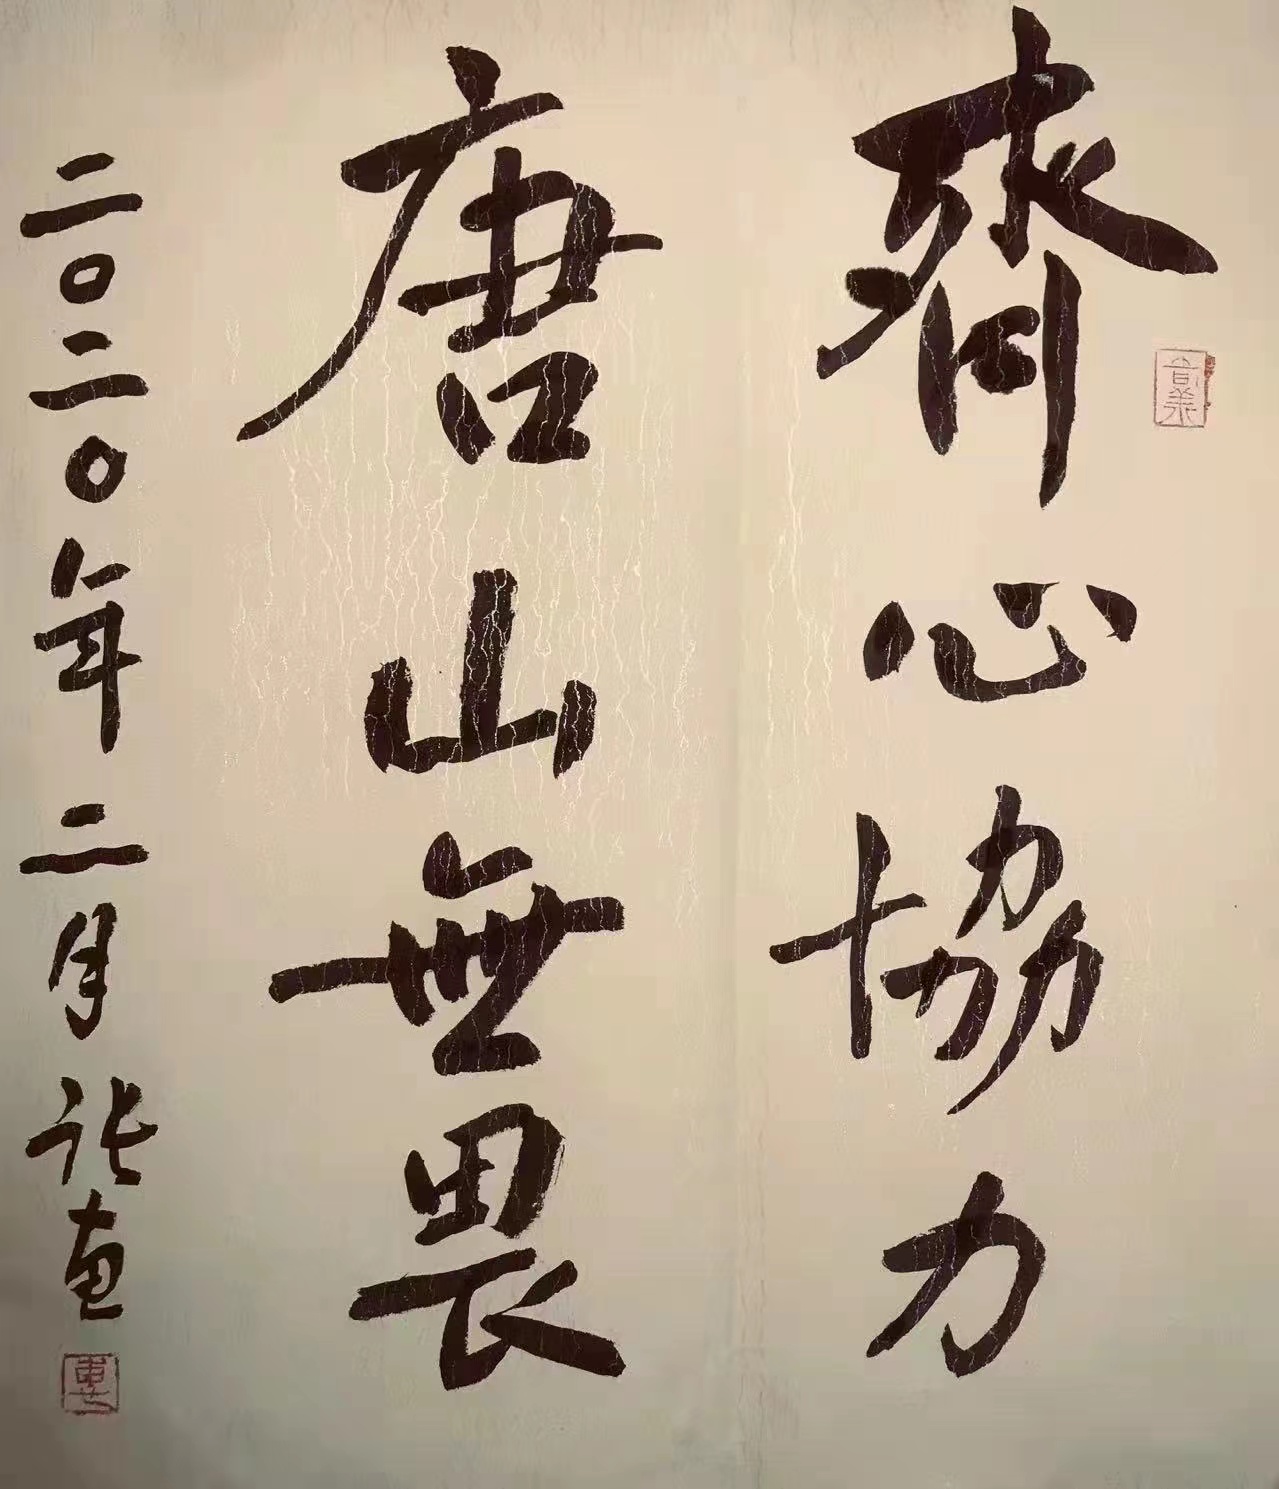 齊心協力
唐山無畏
二〇二〇年二月